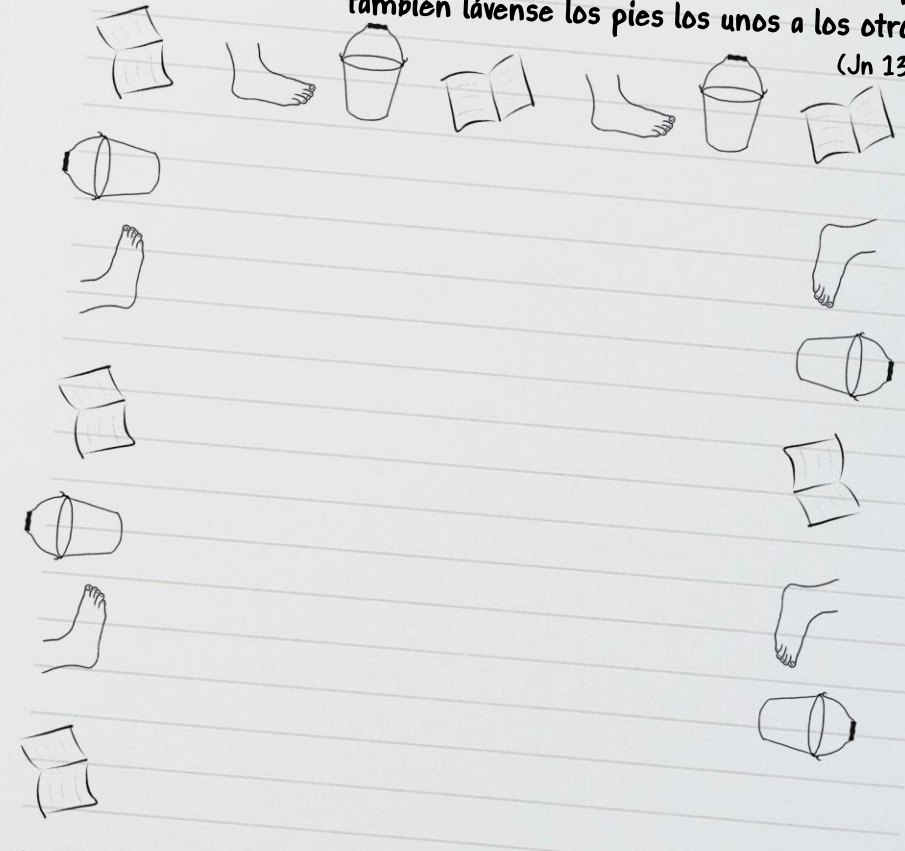 también lávense los pies los unos a los
(Jn 13